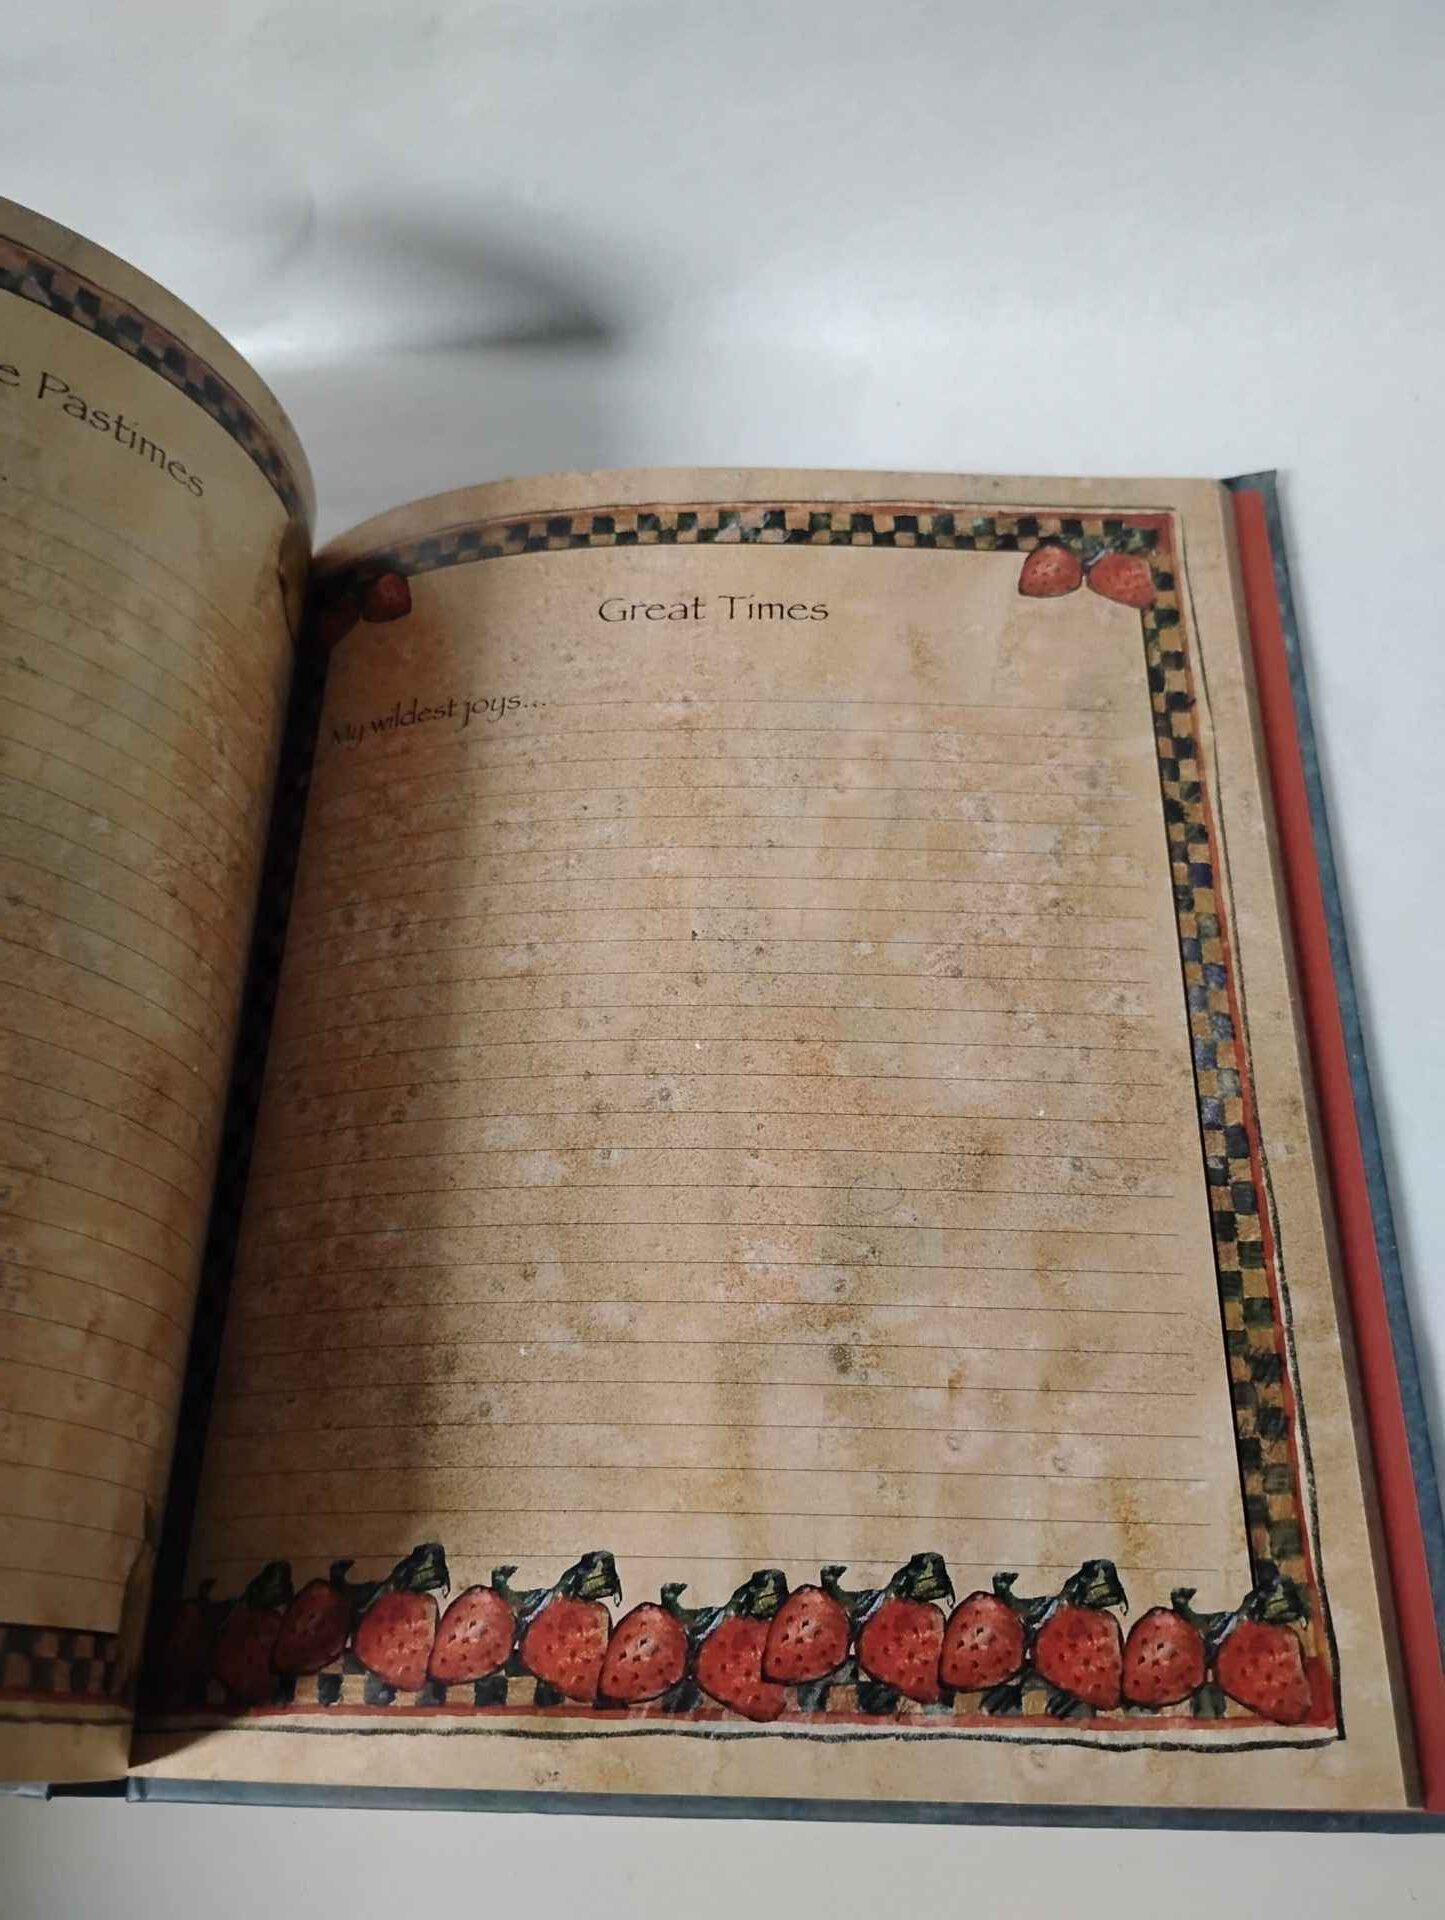 e Pastimes
Great Times
My wildest joys...